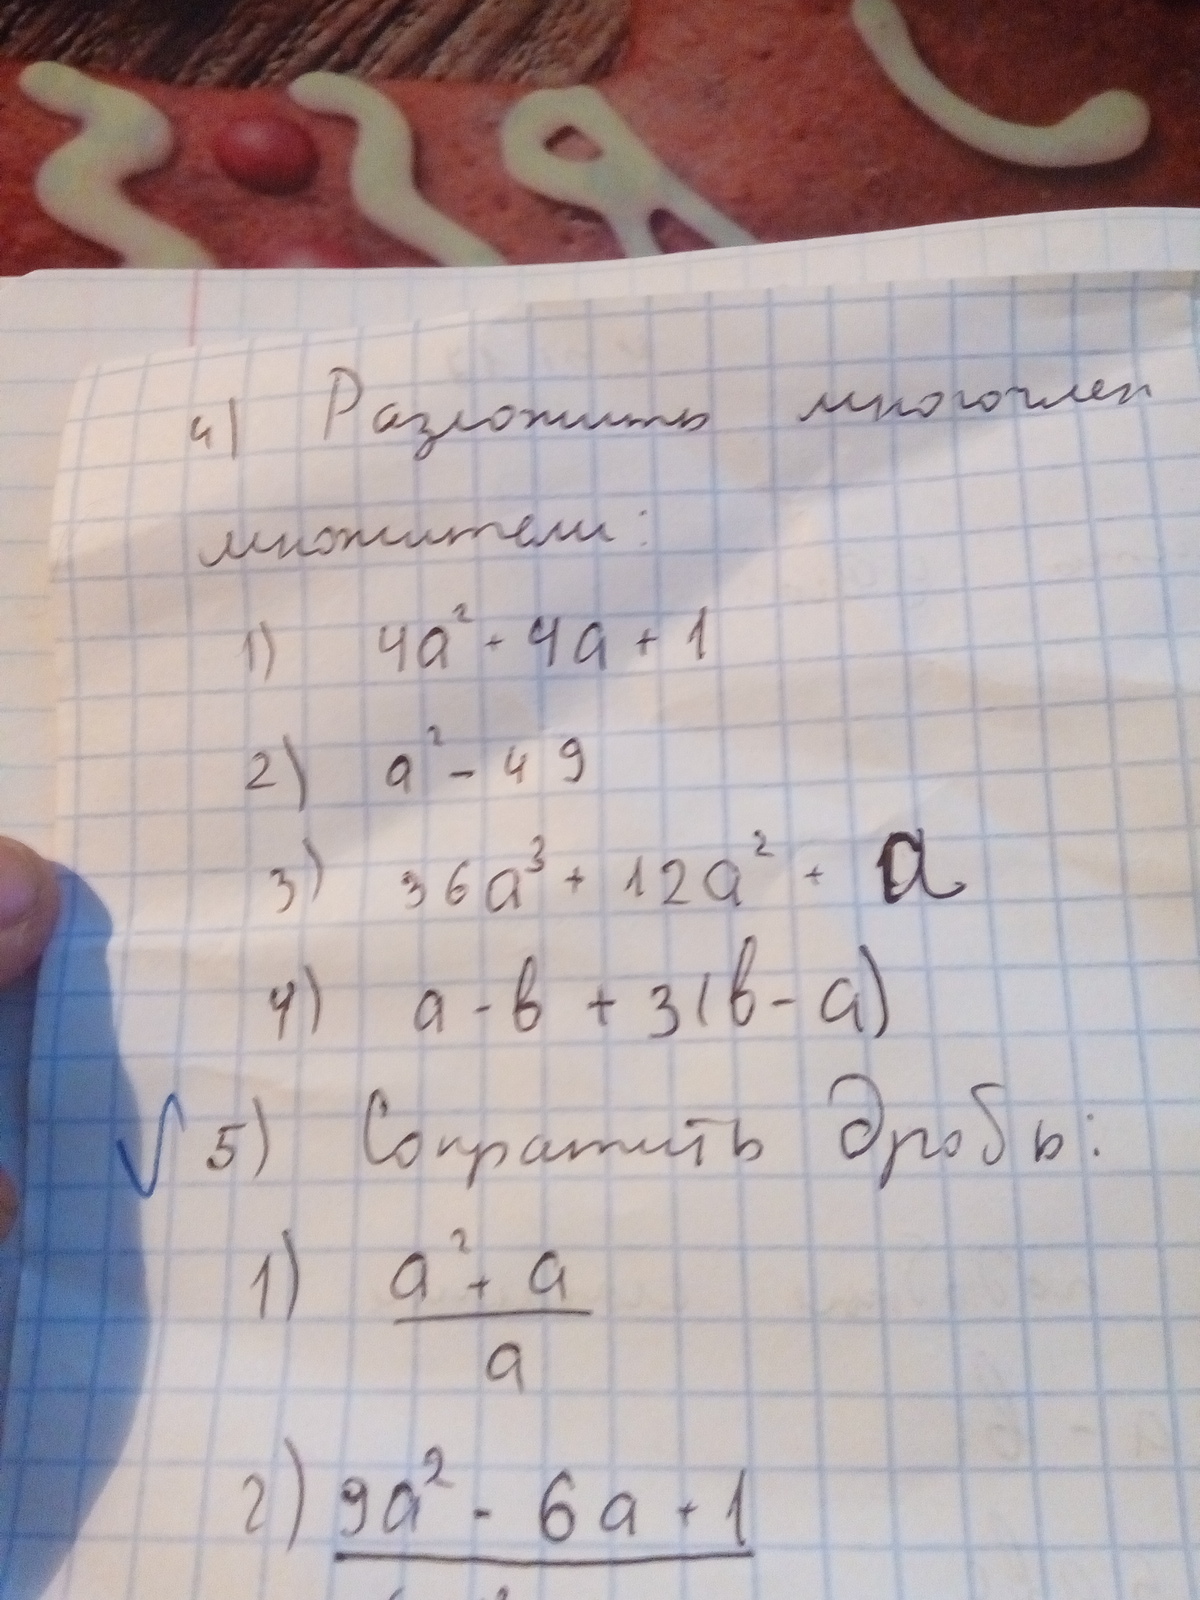 4) Разложить многочлен
множители:
1) 4a² + 4a + 1
2) a² - 49
3) 36a³ + 12a² + a
4) a - b + 3(b - a)
5) Сократить дробь:
1) a² + a
a
2) 9a² - 6a + 1